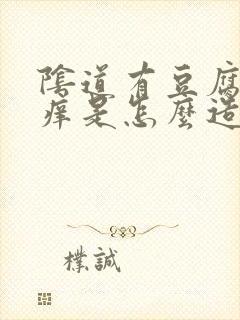 陰道有豆腐
痒是怎麼造
樸誠